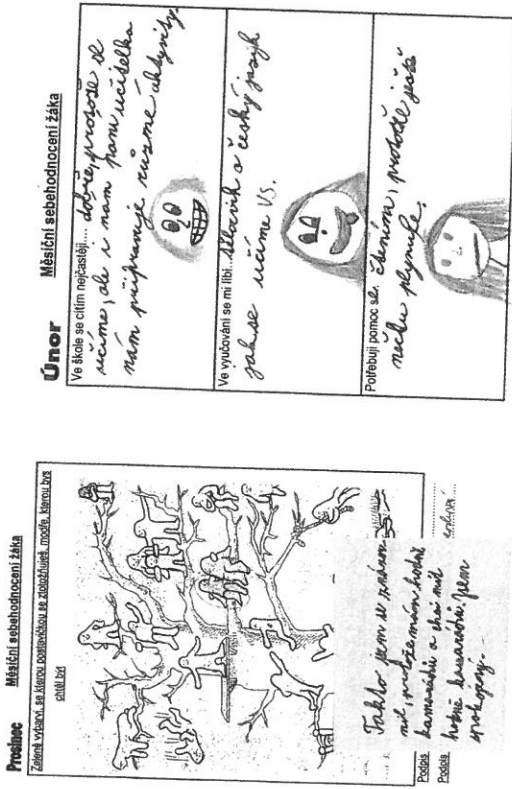 Prosinec Měsíční sebehodnocení žáka
Zeleně vybarvi, se kterou postavičkou se ztotožňuješ, modře, kterou bys
chtěl být
Takto jsem se
mít, mám hodně
kamarádů a chci mít
hodně kamarádů. Jsem
spokojený.
Podpis
Podpis
Únor Měsíční sebehodnocení žáka
Ve škole se cítím nejčastěji.... dobře, protože se
učíme, ale i nám paní učitelka
nám připravuje různé aktyvity.
Ve vyučování se mi líbí.. dělavih a český jazyk
jak se učíme VS.
Potřebuji pomoc s.. čtením, protože ještě
nečtu plynule.